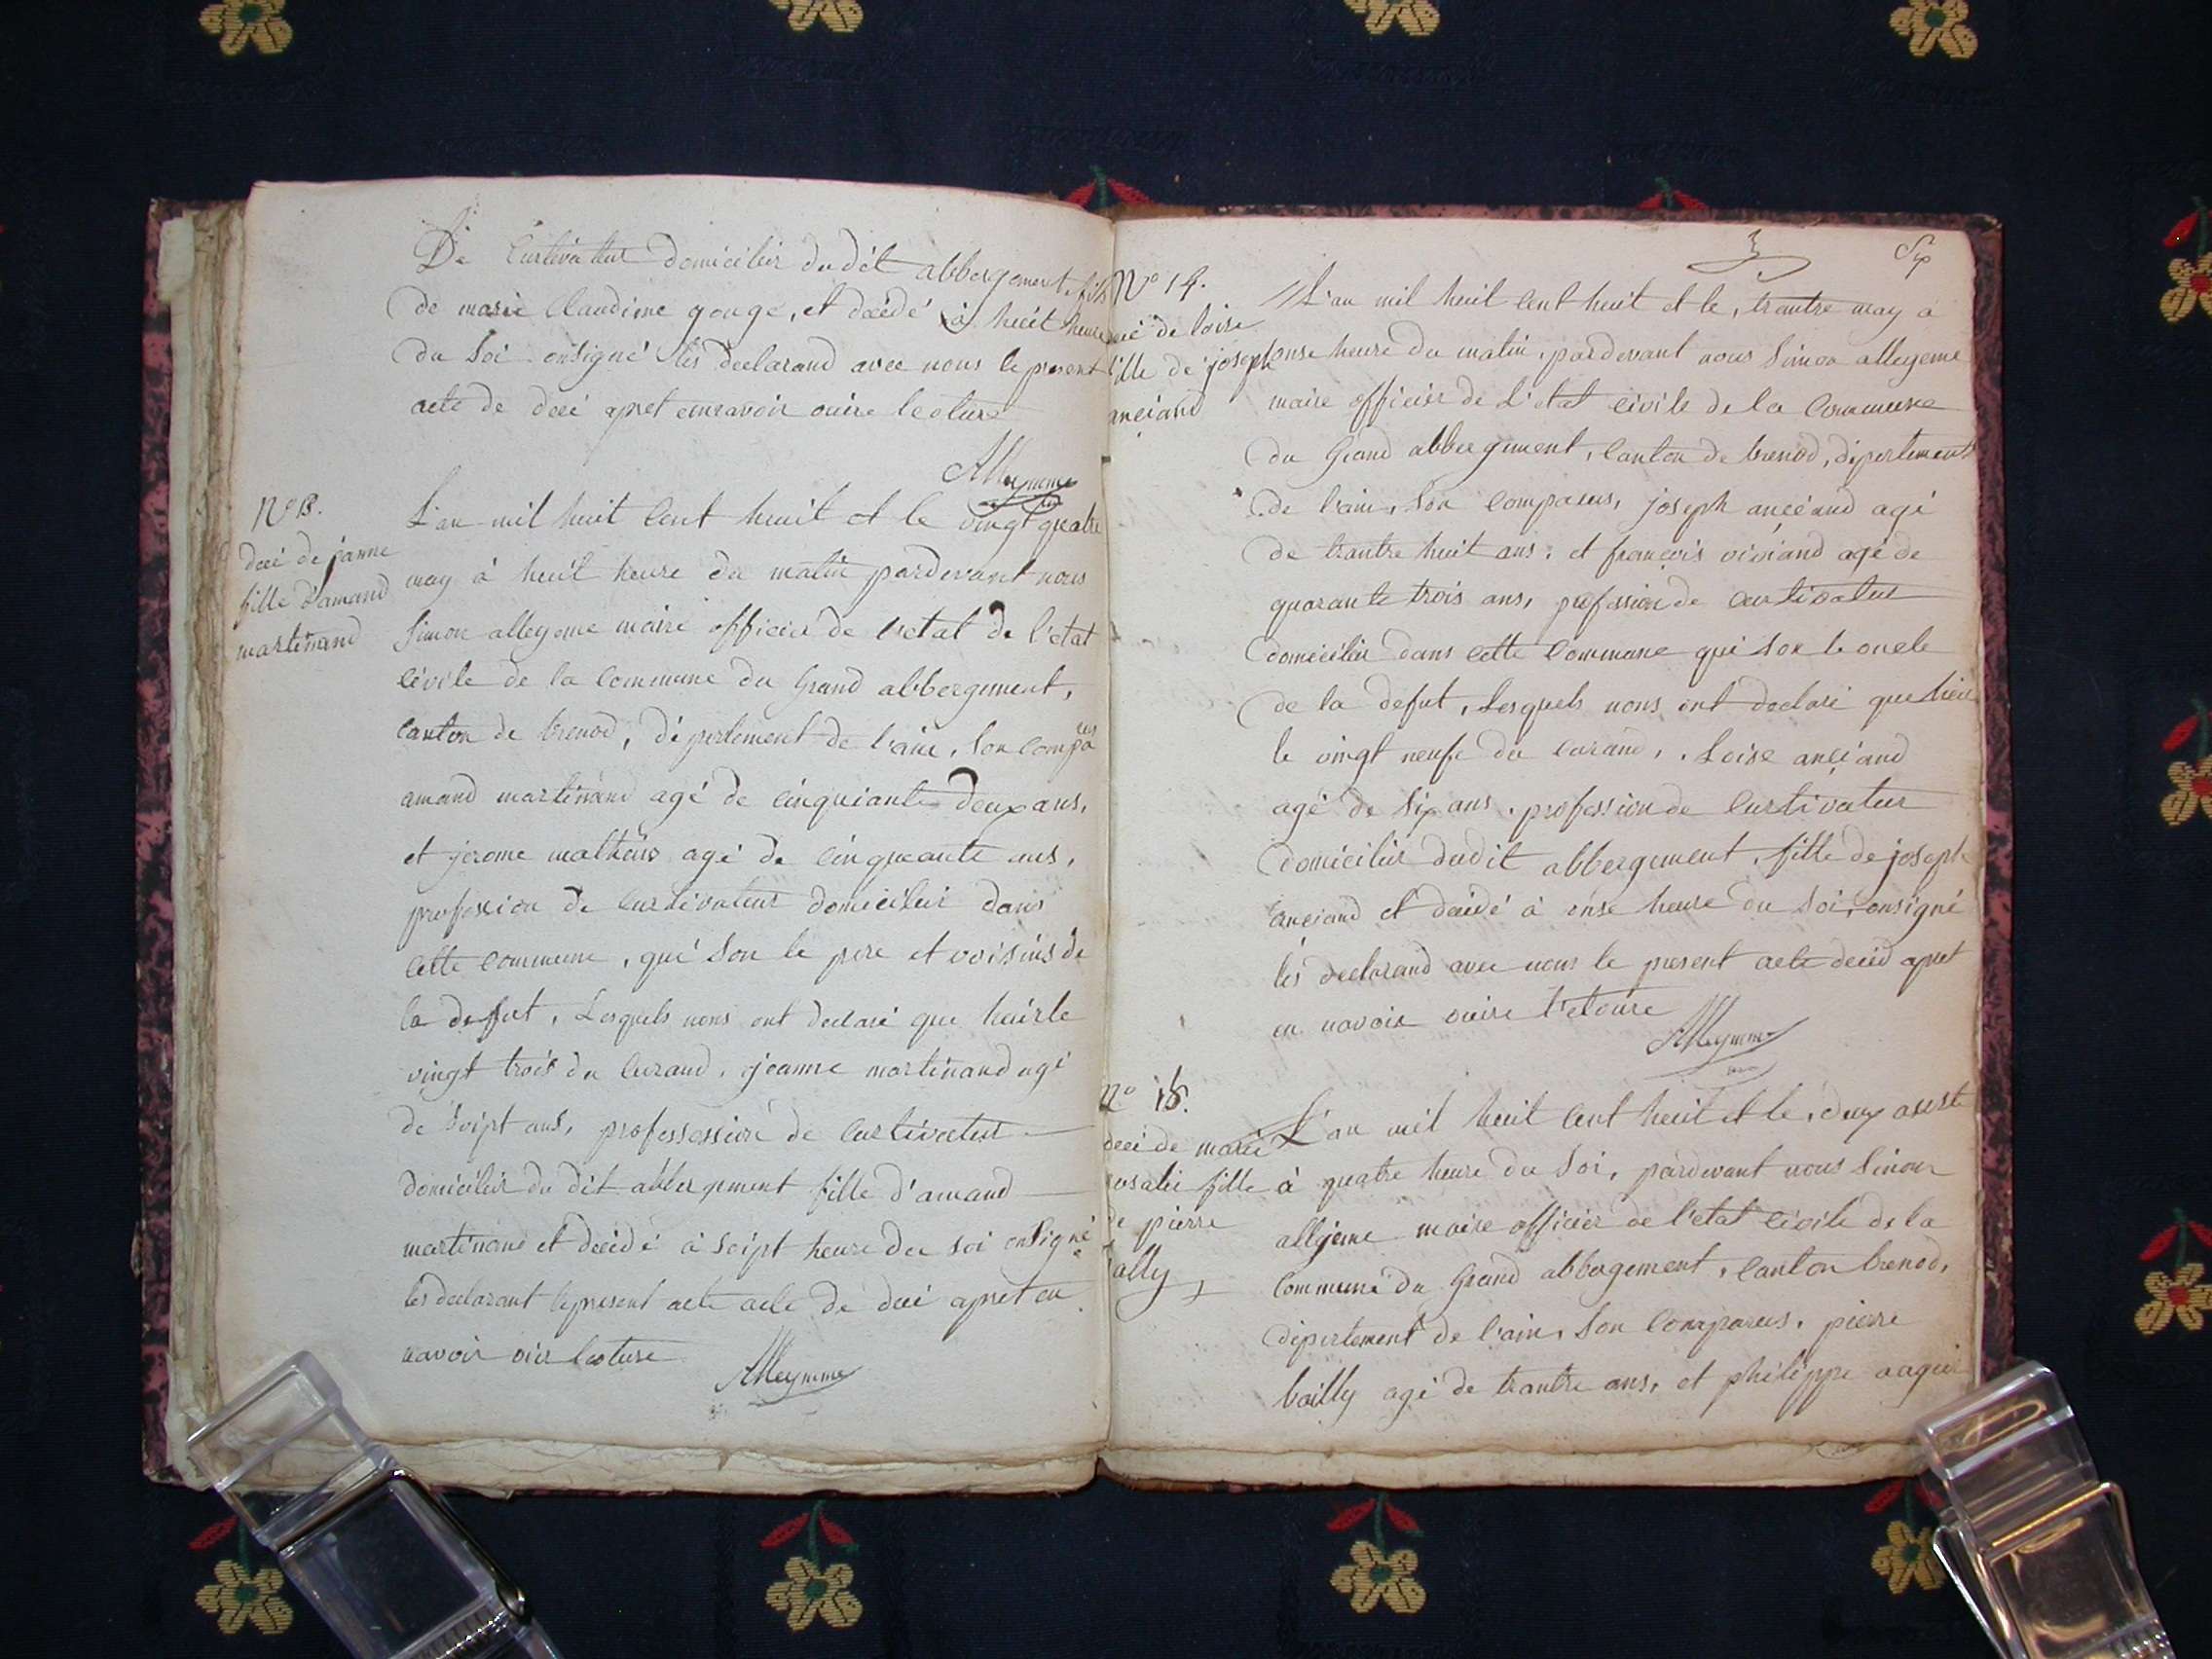 De Curtivateur domicilier du dit abbergement, fils
de marie Claudine gouge, et décédé à huit heure
du Soi onsigné lès declarand avec nous le present
acte de decé apret enavoir ouire lecture
Alleymme
N° 13.
decé de janne
fille d'amand
martinand
L'an mil huit Cent huit et le vingt quatre
may à huit heure du matin pardevant nous
Simon allegeme maire officier de l'etat de l'etat
Civile de la Commune du Grand abbergement,
Canton de brenod, dépertement de l'ain, Son comparus
amand martinand agé de cinquiante deux ans,
et jerome mathieu agé de cinqueante ans,
profession de Curtivateur domicilier dans
Cette Commune, qui Son le pere et voisins de
la defut, Lesquels nous ont declaré que hairle
vingt trois du Curand, jeanne martinand agé
de Seipt ans, professession de Curtivateur
domicilier du dit abbergement fille d'amand
martinand et decédé à Seipt heure du soi onsigné
les declarant le present acte acte de decé apret en
navoir oier lecture
Alleymme
Six
N° 14.
decé de loise
fille de joseph
anciand
L'an mil huit Cent huit et le, trantre may à
onse heure du matin, pardevant nous Simon allegeme
maire officier de L'etat Civile de la Commune
du Grand abbergement, Canton de brenod, dipertement
de l'ain, Son Comparus, joseph anciand agé
de trantre huit ans, et françois viviand agé de
quarante trois ans, profession de curtivateur
domicilier dans cette Commune qui Son le oncle
de la defut, Lesquels nous ont declaré que hier
le vingt neufe du Curand, Loise anciand
agé de Six ans, profession de Curtivateur
domicilier dudit abbergement, fille de joseph
anciand et decédé à onse heure du Soi, onsigné
lès declarand avec nous le present acte decéd apret
en navoir ouire letoure
Alleymme
N° 15.
decé de marie
rosalie fille
de pierre
bally
L'an mil huit Cent huit et le, deux auste
à quatre heure du Soi, pardevant nous Simon
allgeme maire officier de l'etat Civile de la
Commune du Grand abbergement, Canton brenod,
dipertement de l'ain, Son Comparus, pierre
bailly agé de trantre ans, et philippe